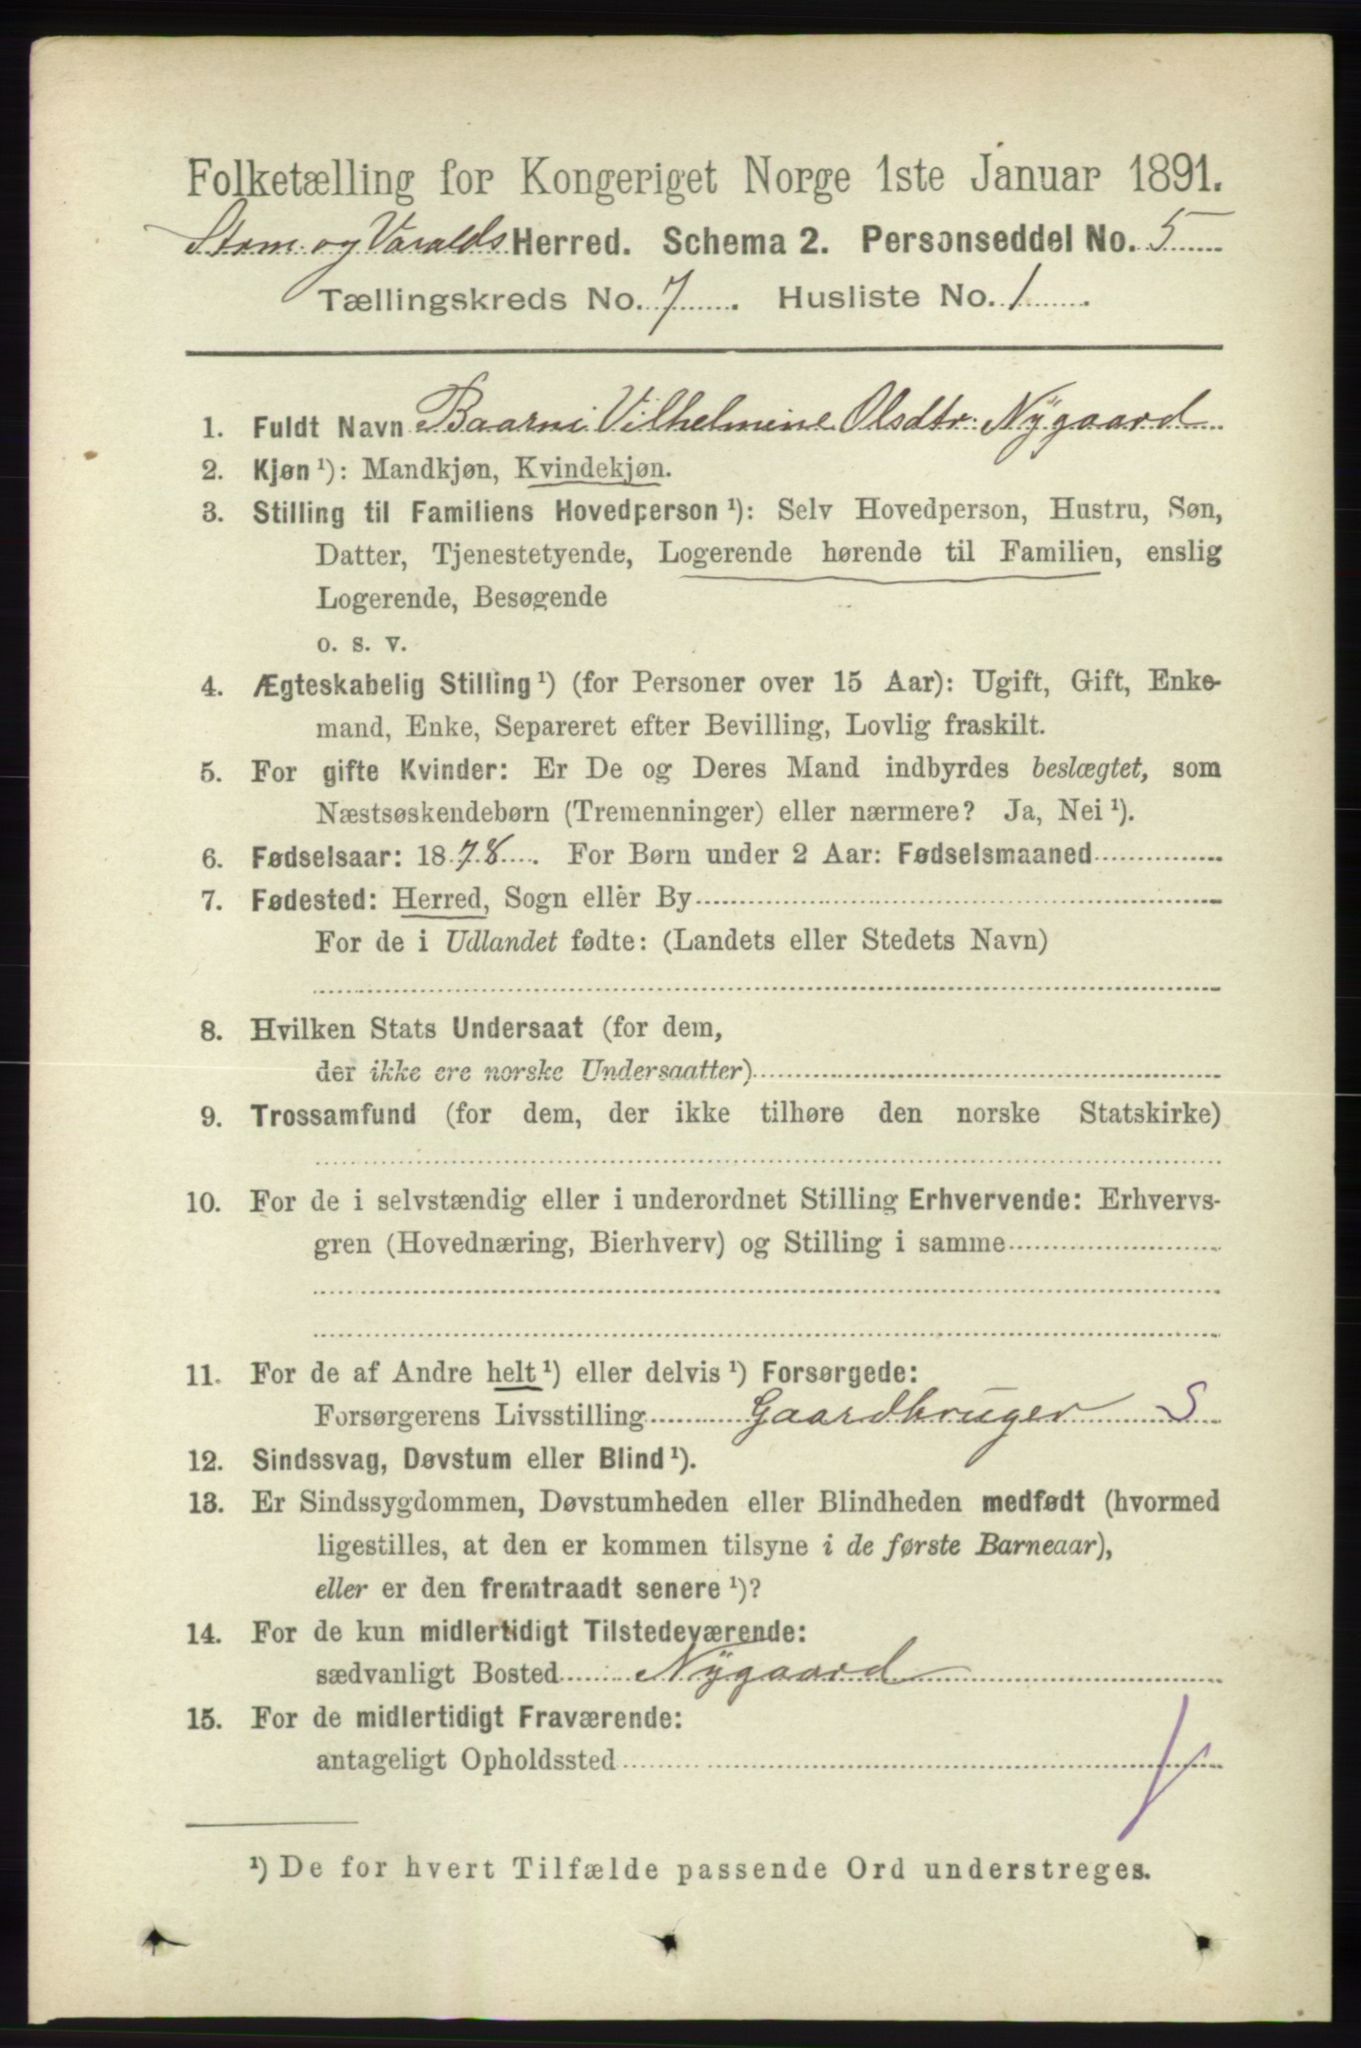 Folketælling for Kongeriget Norge 1ste Januar 1891.
Strøm og Varalds Herred. Schema 2. Personseddel No. 5
Tællingskreds No. 7. Husliste No. 1.
1. Fuldt Navn Baarni Vilhelmine Olsdtr. Nÿgaard
2. Kjøn ¹): Mandkjøn, Kvindekjøn.
3. Stilling til Familiens Hovedperson ¹): Selv Hovedperson, Hustru, Søn,
Datter, Tjenestetyende, Logerende hørende til Familien, enslig
Logerende, Besøgende
o. s. v.
4. Ægteskabelig Stilling ¹) (for Personer over 15 Aar): Ugift, Gift, Enke-
mand, Enke, Separeret efter Bevilling, Lovlig fraskilt.
5. For gifte Kvinder: Er De og Deres Mand indbyrdes beslægtet, som
Næstsøskendebørn (Tremenninger) eller nærmere? Ja, Nei ¹).
6. Fødselsaar: 1878. For Børn under 2 Aar: Fødselsmaaned
7. Fødested: Herred, Sogn eller By
For de i Udlandet fødte: (Landets eller Stedets Navn)
8. Hvilken Stats Undersaat (for dem,
der ikke ere norske Undersaatter)
9. Trossamfund (for dem, der ikke tilhøre den norske Statskirke)
10. For de i selvstændig eller i underordnet Stilling Erhvervende: Erhvervs-
gren (Hovednæring, Bierhverv) og Stilling i samme
11. For de af Andre helt ¹) eller delvis ¹) Forsørgede:
Forsørgerens Livsstilling Gaardbruger S
12. Sindssvag, Døvstum eller Blind ¹).
13. Er Sindssygdommen, Døvstumheden eller Blindheden medfødt (hvormed
ligestilles, at den er kommen tilsyne i de første Barneaar),
eller er den fremtraadt senere ¹)?
14. For de kun midlertidigt Tilstedeværende:
sædvanligt Bosted Nÿgaard
15. For de midlertidigt Fraværende:
antageligt Opholdssted
¹) De for hvert Tilfælde passende Ord understreges.